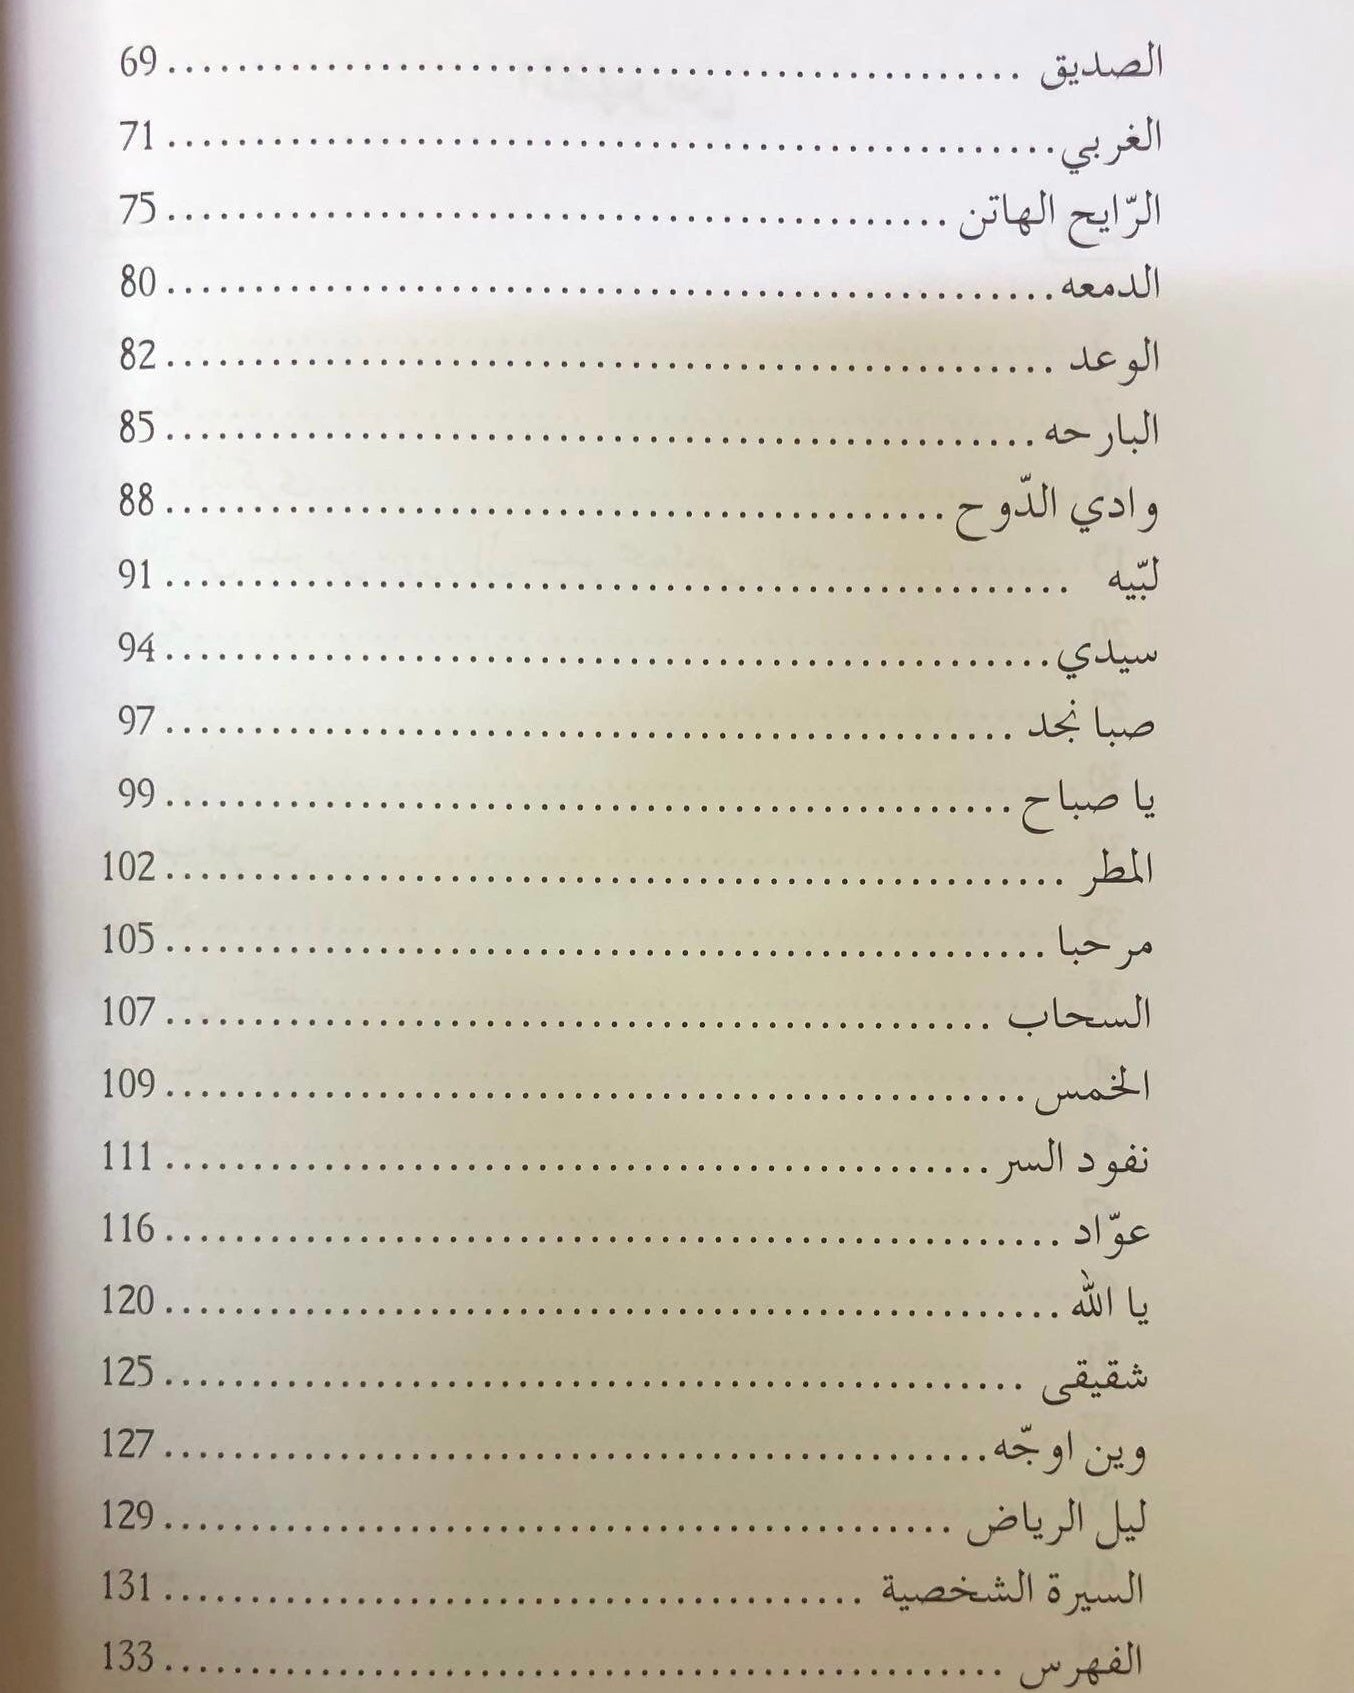 الصديق ................................................ 69
الغربي ................................................ 71
الرّايح الهاتن ................................................ 75
الدمعه ................................................ 80
الوعد ................................................ 82
البارحه ................................................ 85
وادي الدّوح ................................................ 88
لبّيه ................................................ 91
سيدي ................................................ 94
صبا نجد ................................................ 97
يا صباح ................................................ 99
المطر ................................................ 102
مرحبا ................................................ 105
السحاب ................................................ 107
الخمس ................................................ 109
نفود السر ................................................ 111
عوّاد ................................................ 116
يا الله ................................................ 120
شقيقى ................................................ 125
وين اوجّه ................................................ 127
ليل الرياض ................................................ 129
السيرة الشخصية ................................................ 131
الفهرس ................................................ 133